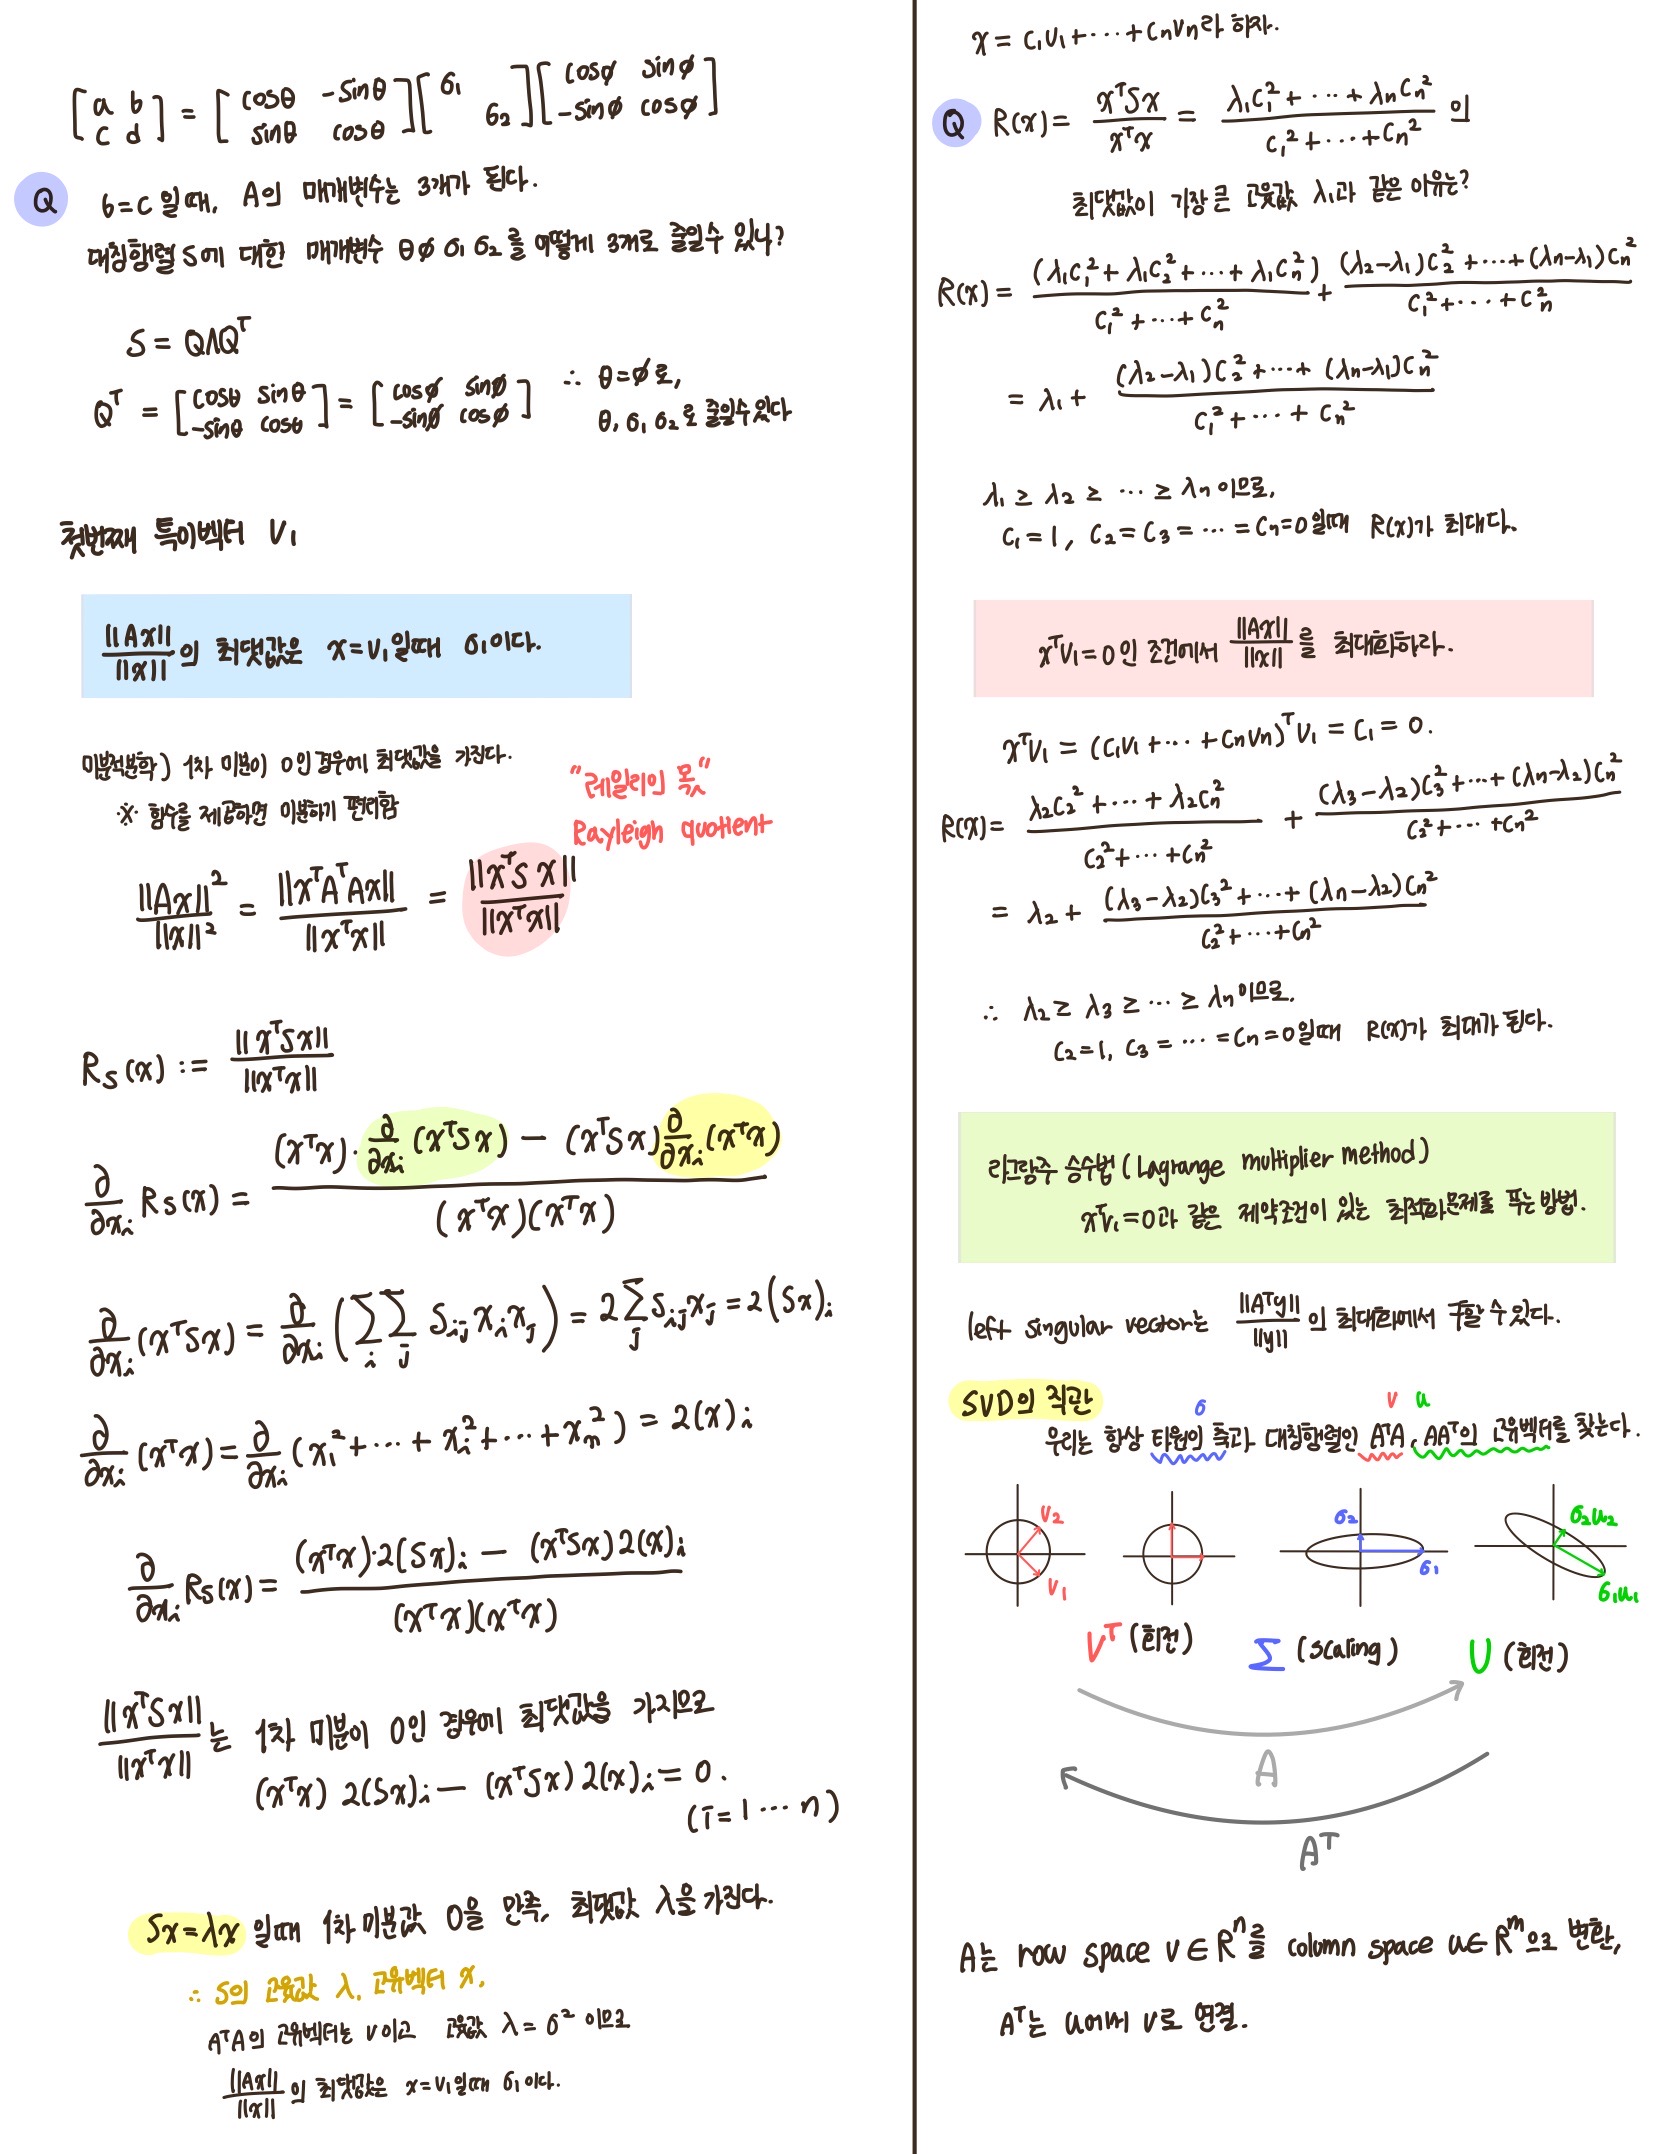 [a b; c d] = [cosθ -sinθ; sinθ cosθ][σ₁ ; σ₂][cosφ sinφ; -sinφ cosφ]
Q b=c 일때, A의 매개변수는 3개가 된다.
대칭행렬 S에 대한 매개변수 θ φ σ₁ σ₂ 를 어떻게 3개로 줄일수 있나?
S = QΛQᵀ
Qᵀ = [cosθ sinθ; -sinθ cosθ] = [cosφ sinφ; -sinφ cosφ] ∴ θ=φ로,
θ, σ₁ σ₂로 줄일수있다
첫번째 특이벡터 V₁
||Ax||/||x|| 의 최댓값은 x=v₁일때 σ₁이다.
미분적분학) 1차 미분이 0인경우에 최댓값을 가진다.
※ 함수를 제곱하면 미분하기 편리함
"레일리의 몫"
Rayleigh quotient
||Ax||²/||x||² = ||xᵀAᵀAx||/||xᵀx|| = ||xᵀSx||/||xᵀx||
R_S(x) := ||xᵀSx||/||xᵀx||
∂/∂xᵢ R_S(x) = ((xᵀx)·∂/∂xᵢ(xᵀSx) − (xᵀSx)∂/∂xᵢ(xᵀx))/((xᵀx)(xᵀx))
∂/∂xᵢ(xᵀSx) = ∂/∂xᵢ(∑ᵢ∑ⱼ Sᵢⱼxᵢxⱼ) = 2∑ⱼSᵢⱼxⱼ = 2(Sx)ᵢ
∂/∂xᵢ(xᵀx) = ∂/∂xᵢ(x₁²+⋯+xᵢ²+⋯+xₙ²) = 2(x)ᵢ
∂/∂xᵢ R_S(x) = ((xᵀx)·2(Sx)ᵢ − (xᵀSx)2(x)ᵢ)/((xᵀx)(xᵀx))
||xᵀSx||/||xᵀx|| 는 1차 미분이 0인 경우에 최댓값을 가지므로
(xᵀx) 2(Sx)ᵢ − (xᵀSx) 2(x)ᵢ = 0.
(i=1⋯n)
Sx=λx 일때 1차 미분값 0을 만족, 최댓값 λ을 가진다.
∴ S의 고윳값 λ, 고유벡터 x,
AᵀA의 고유벡터는 v이고 고윳값 λ=σ² 이므로
||Ax||/||x|| 의 최댓값은 x=v₁일때 σ₁이다.
x = c₁v₁+⋯+cₙvₙ라 하자.
Q R(x) = xᵀSx/xᵀx = (λ₁c₁²+⋯+λₙcₙ²)/(c₁²+⋯+cₙ²) 의
최댓값이 가장 큰 고윳값 λ₁과 같은 이유는?
R(x) = (λ₁c₁²+λ₁c₂²+⋯+λ₁cₙ²)/(c₁²+⋯+cₙ²) + ((λ₂−λ₁)c₂²+⋯+(λₙ−λ₁)cₙ²)/(c₁²+⋯+cₙ²)
= λ₁ + ((λ₂−λ₁)c₂²+⋯+(λₙ−λ₁)cₙ²)/(c₁²+⋯+cₙ²)
λ₁ ≥ λ₂ ≥ ⋯ ≥ λₙ이므로,
c₁=1, c₂=c₃=⋯=cₙ=0일때 R(x)가 최대다.
xᵀv₁=0인 조건에서 ||Ax||/||x|| 를 최대화하라.
xᵀv₁ = (c₁v₁+⋯+cₙvₙ)ᵀv₁ = c₁ = 0.
R(x) = (λ₂c₂²+⋯+λ₂cₙ²)/(c₂²+⋯+cₙ²) + ((λ₃−λ₂)c₃²+⋯+(λₙ−λ₂)cₙ²)/(c₂²+⋯+cₙ²)
= λ₂ + ((λ₃−λ₂)c₃²+⋯+(λₙ−λ₂)cₙ²)/(c₂²+⋯+cₙ²)
∴ λ₂ ≥ λ₃ ≥ ⋯ ≥ λₙ이므로,
c₂=1, c₃=⋯=cₙ=0일때 R(x)가 최대가 된다.
라그랑주 승수법 (Lagrange multiplier method)
xᵀv₁=0과 같은 제약조건이 있는 최적화문제를 푸는 방법.
left singular vector는 ||Aᵀy||/||y|| 의 최대화에서 구할 수 있다.
SVD의 직관
σ v u
우리는 항상 타원의 축과 대칭행렬인 AᵀA, AAᵀ의 고유벡터를 찾는다.
v₂ v₁ σ₂ σ₁ σ₂u₂ σ₁u₁
Vᵀ (회전) Σ (scaling) U (회전)
A
Aᵀ
A는 row space v∈Rⁿ를 column space u∈Rᵐ으로 변환,
Aᵀ는 u에서 v로 연결.